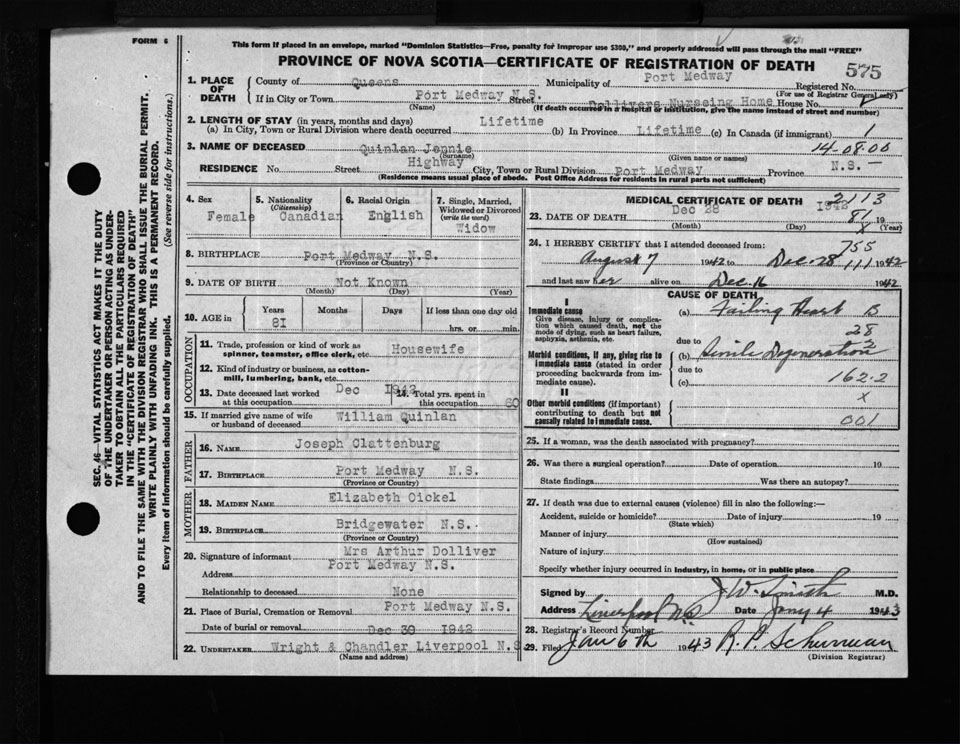 FORM 6
This form if placed in an envelope, marked "Dominion Statistics—Free, penalty for improper use $300," and properly addressed will pass through the mail "FREE"
PROVINCE OF NOVA SCOTIA—CERTIFICATE OF REGISTRATION OF DEATH
575
1. PLACE OF DEATH
County of Queens Municipality of Port Medway Registered No.
(For use of Registrar General only)
If in City or Town Port Medway N.S. Street Dollivers Nurseing Home House No.
(Name) (If death occurred in a hospital or institution, give the name instead of street and number)
2. LENGTH OF STAY (in years, months and days) Lifetime
(a) In City, Town or Rural Division where death occurred (b) In Province Lifetime (c) In Canada (if immigrant) 1
3. NAME OF DECEASED Quinlan Jennie 14-08-00
(Surname) (Given name or names)
RESIDENCE No. Street Highway City, Town or Rural Division Port Medway Province N.S. —
(Residence means usual place of abode. Post Office Address for residents in rural parts not sufficient)
4. Sex Female
5. Nationality (Citizenship) Canadian
6. Racial Origin English
7. Single, Married, Widowed or Divorced (write the word) Widow
8. BIRTHPLACE Port Medway N.S.
(Province or Country)
9. DATE OF BIRTH Not Known
(Month) (Day) (Year)
10. AGE in Years Months Days If less than one day old
81 hrs. or min.
OCCUPATION
11. Trade, profession or kind of work as spinner, teamster, office clerk, etc. Housewife
12. Kind of industry or business, as cotton-mill, lumbering, bank, etc.
13. Date deceased last worked at this occupation Dec 1942
14. Total yrs. spent in this occupation 60
15. If married give name of wife or husband of deceased William Quinlan
FATHER
16. NAME Joseph Clattenburg
17. BIRTHPLACE Port Medway N.S.
(Province or Country)
MOTHER
18. MAIDEN NAME Elizabeth Cickel
19. BIRTHPLACE Bridgewater N.S.
(Province or Country)
20. Signature of informant Mrs Arthur Dolliver
Address Port Medway N.S.
Relationship to deceased None
21. Place of Burial, Cremation or Removal Port Medway N.S.
Date of burial or removal Dec 30 1942
22. UNDERTAKER Wright & Chandler Liverpool N.S
(Name and address)
MEDICAL CERTIFICATE OF DEATH 2113
23. DATE OF DEATH Dec 28 1942 81 19
(Month) (Day) X (Year)
24. I HEREBY CERTIFY that I attended deceased from: 755
August 7 1942 to Dec. 28 111 1942
and last saw her alive on Dec. 16 1942
CAUSE OF DEATH
I
Immediate cause
Give disease, injury or complication which caused death, not the mode of dying, such as heart failure, asphyxia, asthenia, etc.
(a) Failing Heart B
28
due to 2
Morbid conditions, if any, giving rise to immediate cause (stated in order proceeding backwards from immediate cause).
(b) Senile Degeneration
due to
(c) 162.2
II
X
Other morbid conditions (if important) contributing to death but not causally related to immediate cause.
001
25. If a woman, was the death associated with pregnancy?
26. Was there a surgical operation? Date of operation 19
State findings Was there an autopsy?
27. If death was due to external causes (violence) fill in also the following:—
Accident, suicide or homicide? Date of injury 19
(State which)
Manner of injury
(How sustained)
Nature of injury
Specify whether injury occurred in industry, in home, or in public place
Signed by J. W. Smith M.D.
Address Liverpool N.S. Date Jany 4 1943
28. Registrar's Record Number
29. Filed Jan 6th 1943 R. P. Schurman
(Division Registrar)
SEC. 46—VITAL STATISTICS ACT MAKES IT THE DUTY
OF THE UNDERTAKER OR PERSON ACTING AS UNDER-
TAKER TO OBTAIN ALL THE PARTICULARS REQUIRED
IN THE "CERTIFICATE OF REGISTRATION OF DEATH"
AND TO FILE THE SAME WITH THE DIVISION REGISTRAR WHO SHALL ISSUE THE BURIAL PERMIT.
WRITE PLAINLY WITH UNFADING INK. THIS IS A PERMANENT RECORD.
Every item of information should be carefully supplied. (See reverse side for instructions.)